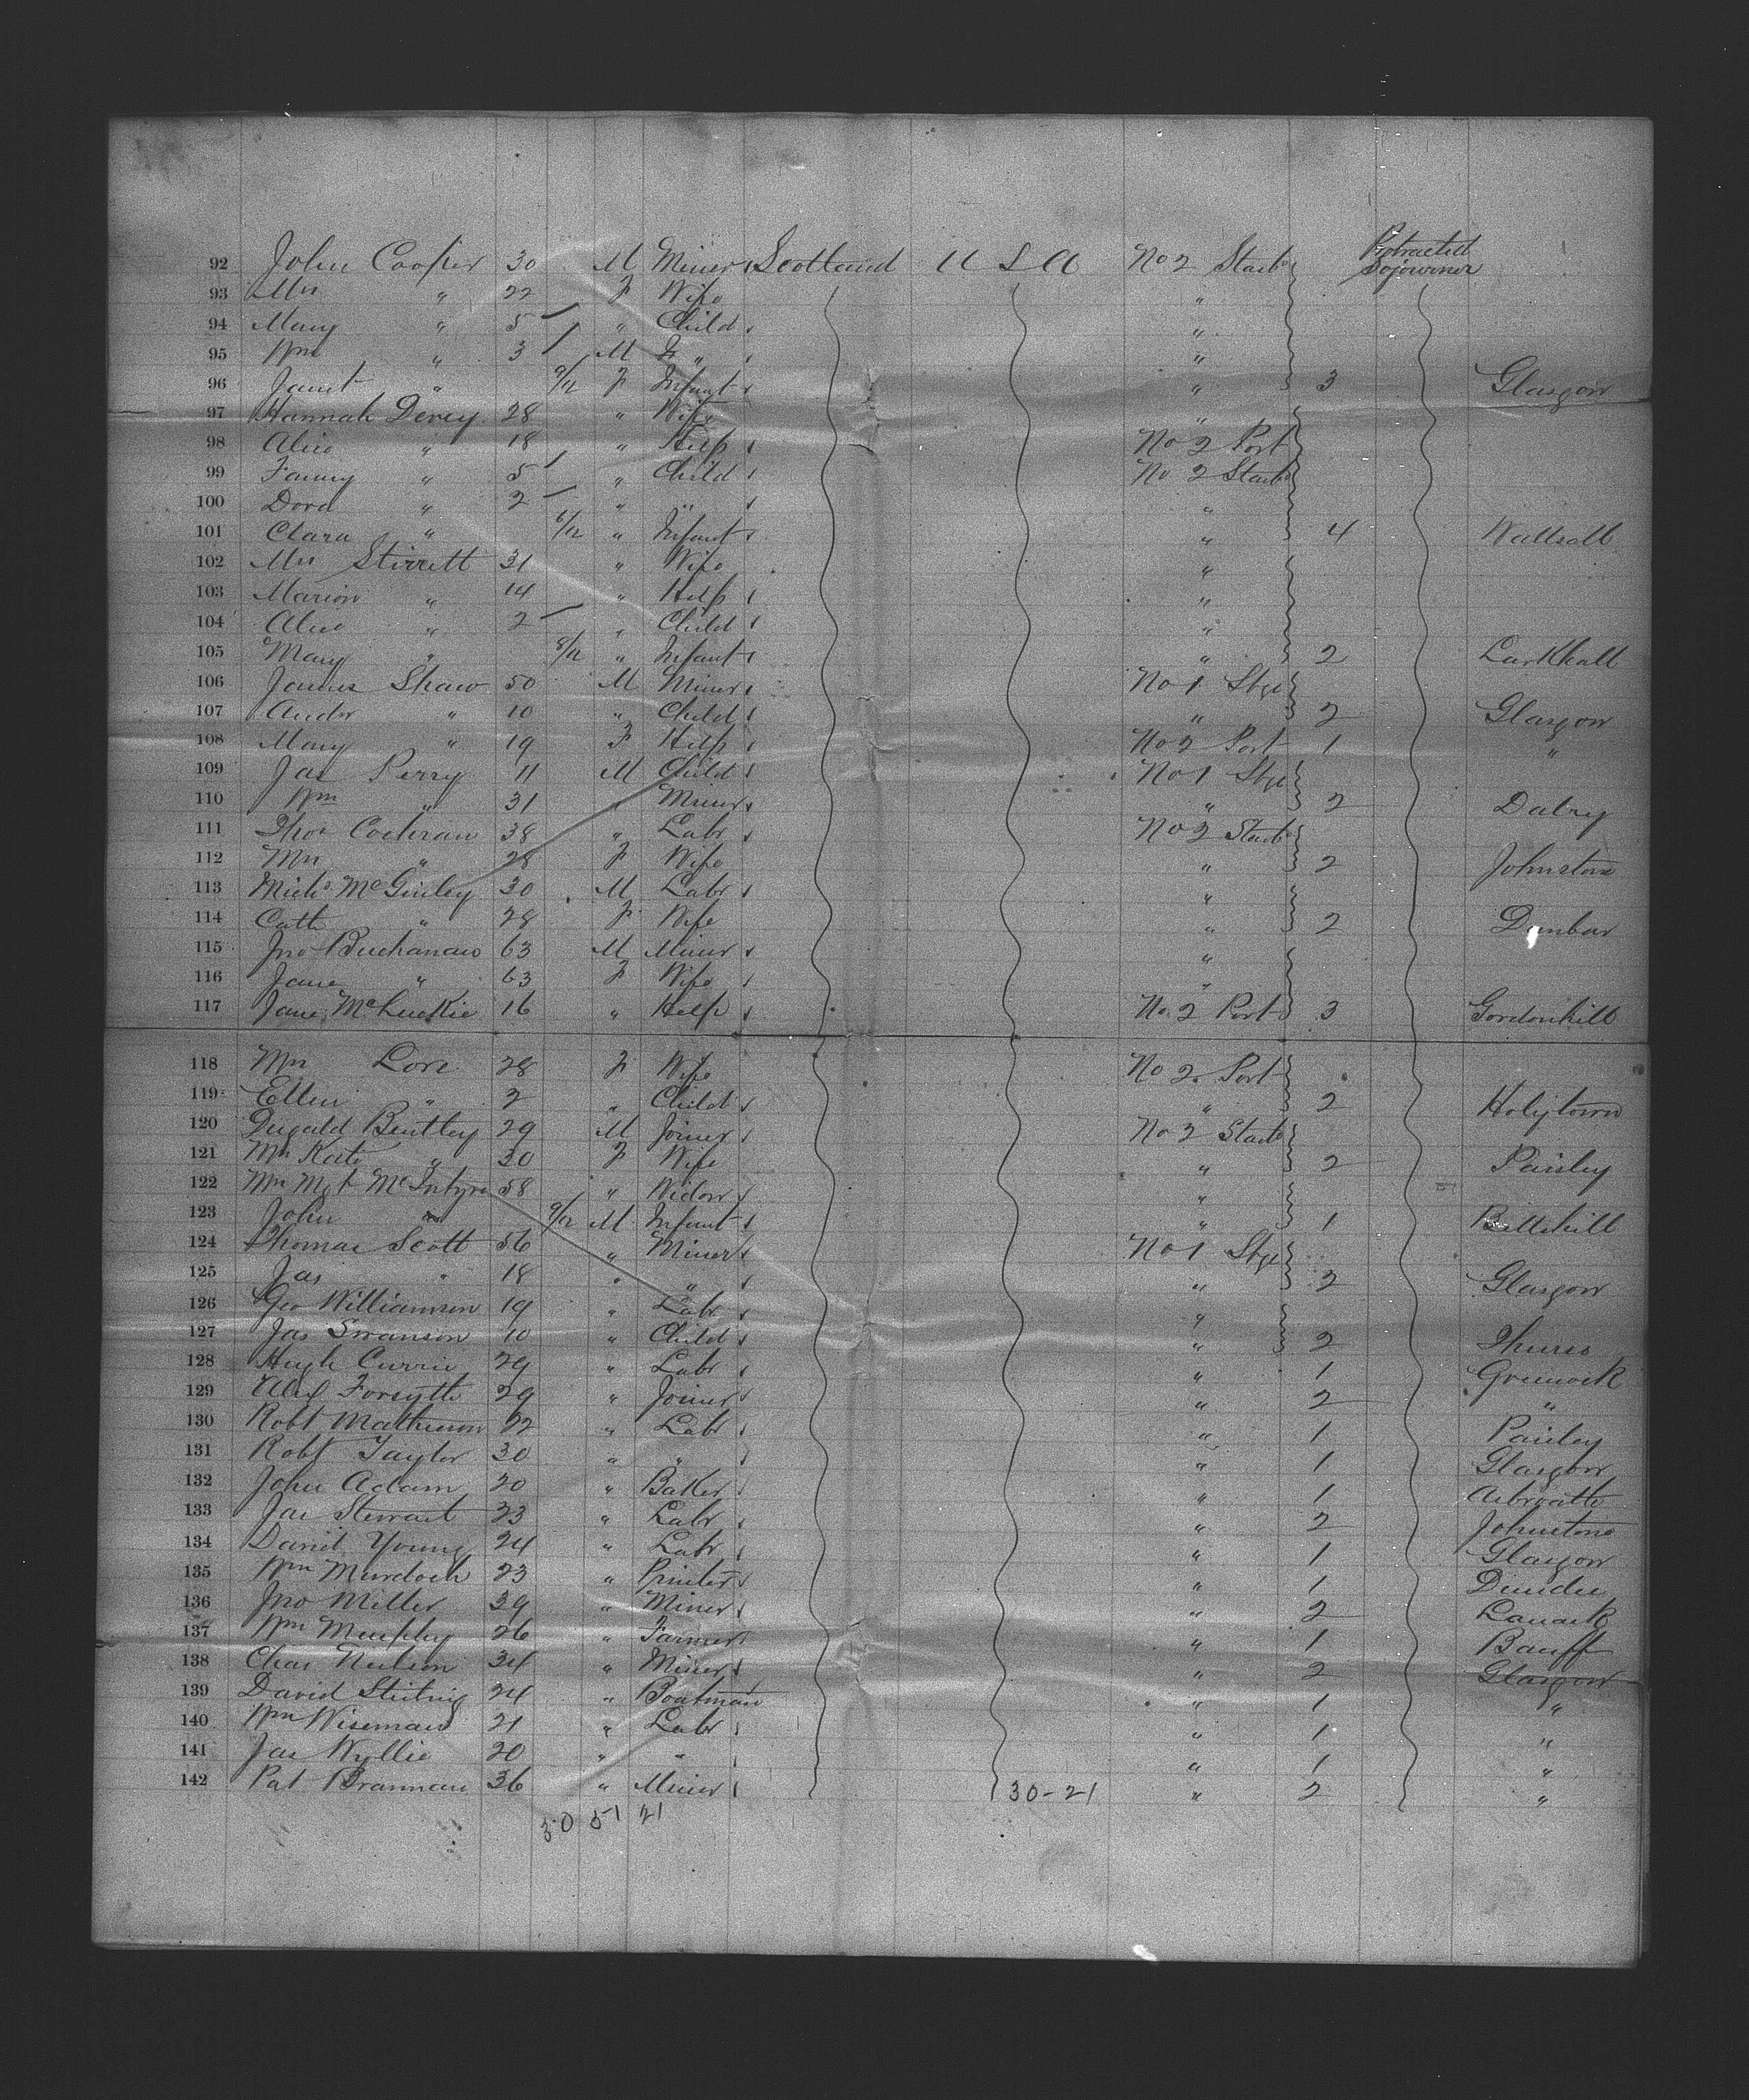 92 John Cooper 30 M Miner Scotland U S A No 2 Starb Protracted Sojourner
93 Mrs " 22 F Wife "
94 Mary " 5 " Child "
95 Wm " 3 M " "
96 Janet " 9/12 F Infant " 3 Glasgow
97 Hannah Derey 28 " Wife "
98 Alice " 18 " Help No 2 Port
99 Fanny " 5 " Child No 2 Starb
100 Dora " 2 " " "
101 Clara " 6/12 " Infant " 4 Wallsall
102 Mrs Stirrett 31 " Wife "
103 Marion " 14 " Help "
104 Alice " 2 " Child "
105 Mary " 8/12 " Infant " 2 Larkhall
106 James Shaw 50 M Miner No 1 Stge
107 Andw " 10 " Child " 2 Glasgow
108 Mary " 19 F Help No 2 Port 1 "
109 Jas Perry 11 M Child No 1 Stge
110 Wm " 31 " Miner " 2 Dalry
111 Thos Cochran 38 " Labr No 2 Starb
112 Mrs " 28 F Wife " 2 Johnstone
113 Michl McGinley 30 M Labr "
114 Cath " 28 F Wife " 2 Dunbar
115 Jno Buchanan 63 M Miner "
116 Jane " 63 F Wife "
117 Jane McLuckie 16 " Help No 2 Port 3 Gordonhill
118 Mrs Love 28 F Wife No 2 Port
119 Ellen " 2 " Child " 2 Holytown
120 Dugald Bentley 29 M Joiner No 2 Starb
121 Mrs Kate " 30 F Wife " 2 Paisley
122 Mrs Mgt McIntyre 58 " Widow "
123 John " 9/12 M Infant " 1
124 Thomas Scott 56 " Miner No 1 Stge
125 Jas " 18 " " " 2 Glasgow
126 Geo Williamson 19 " Labr "
127 Jas Swanson 10 " Child " 2 Thurso
128 Hugh Currie 29 " Labr " 1 Greenock
129 Alex Forsyth 29 " Joiner " 2 "
130 Robt Mathieson 22 " Labr " 1 Paisley
131 Robt Taylor 30 " " " 1 Glasgow
132 John Adam 20 " Baker " 1 Arbroath
133 Jas Stewart 23 " Labr " 2 Johnstone
134 David Young 24 " Labr " 1 Glasgow
135 Wm Murdoch 23 " Printer " 1 Dundee
136 Jno Miller 39 " Miner " 2 Lanark
137 Wm Murphy 26 " Farmer " 1 Banff
138 Chas Neilson 34 " Miner " 2 Glasgow
139 David Stirling 24 " Boatman " 1 "
140 Wm Wiseman 21 " Labr " 1 "
141 Jas Wyllie 20 " " " 1 "
142 Pat Brannan 36 " Miner 30-21 " 2 "
30 51 21